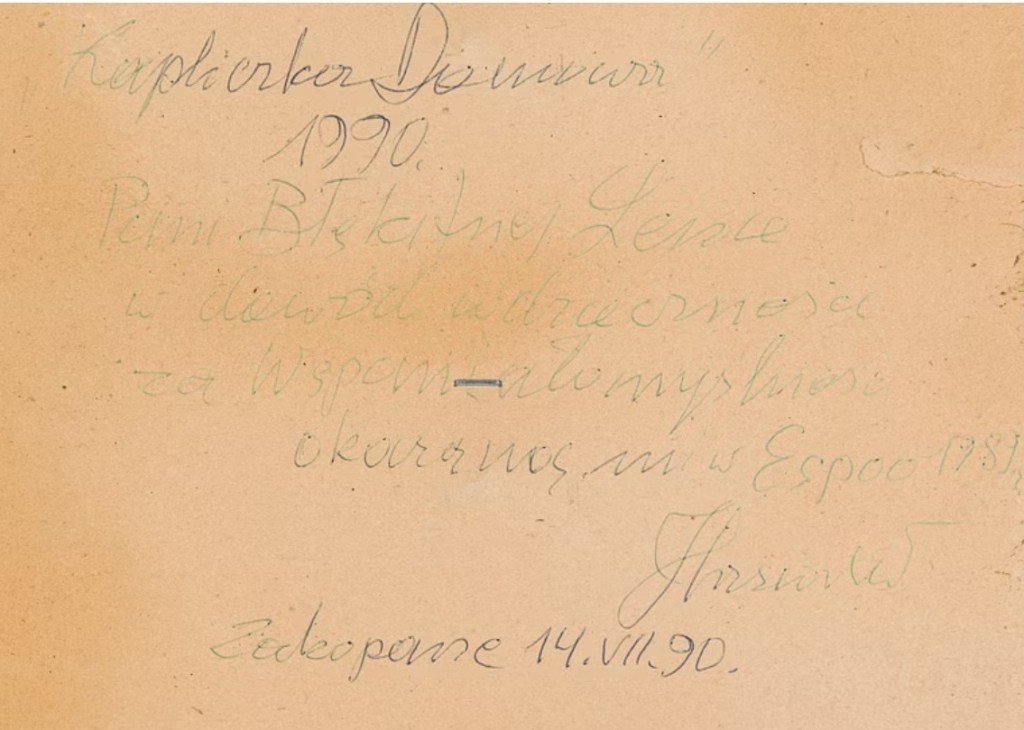 "Kapliczka Domowa"
1990.
Pani Błękitnej Lence
w dowód wdzięczności
za Wspaniałomyślność
okazaną mi w Espoo 1989r.
JHasior
Zakopane 14.VII.90.